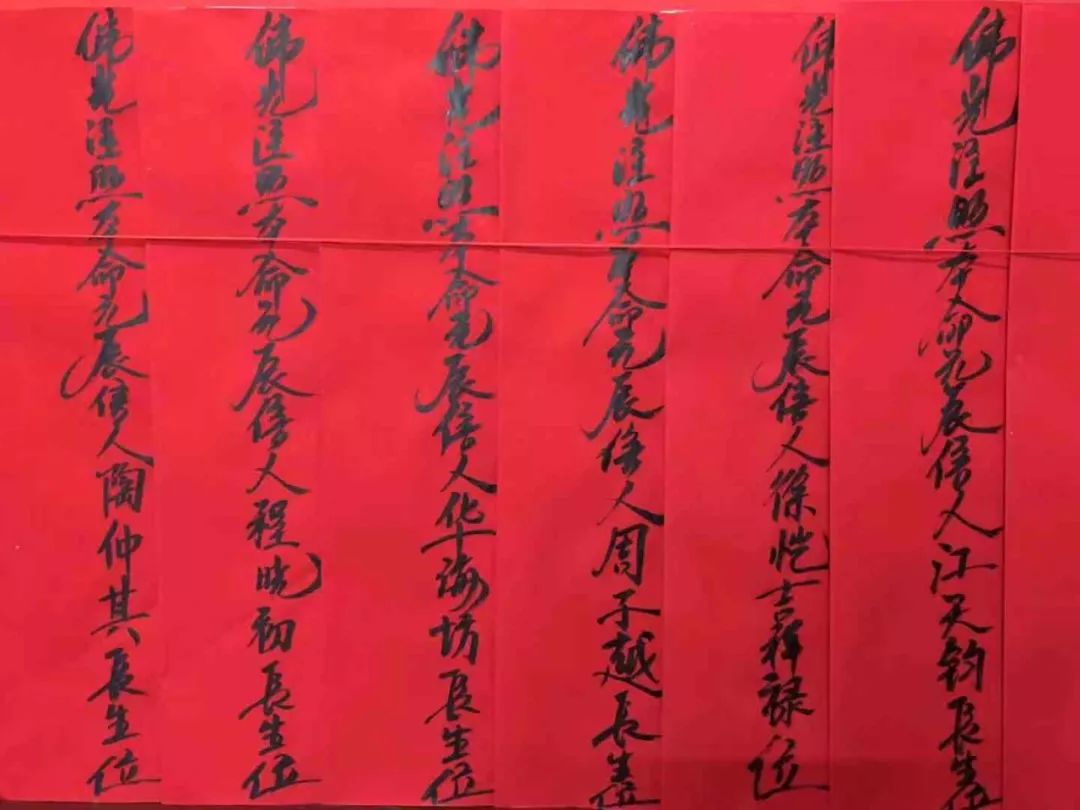 佛光注照本命元辰信人江天钧長生位
佛光注照本命元辰信人徐恺吉祥禄位
佛光注照本命元辰信人周子越長生位
佛光注照本命元辰信人华海坊長生位
佛光注照本命元辰信人程晓初長生位
佛光注照本命元辰信人陶仲其長生位